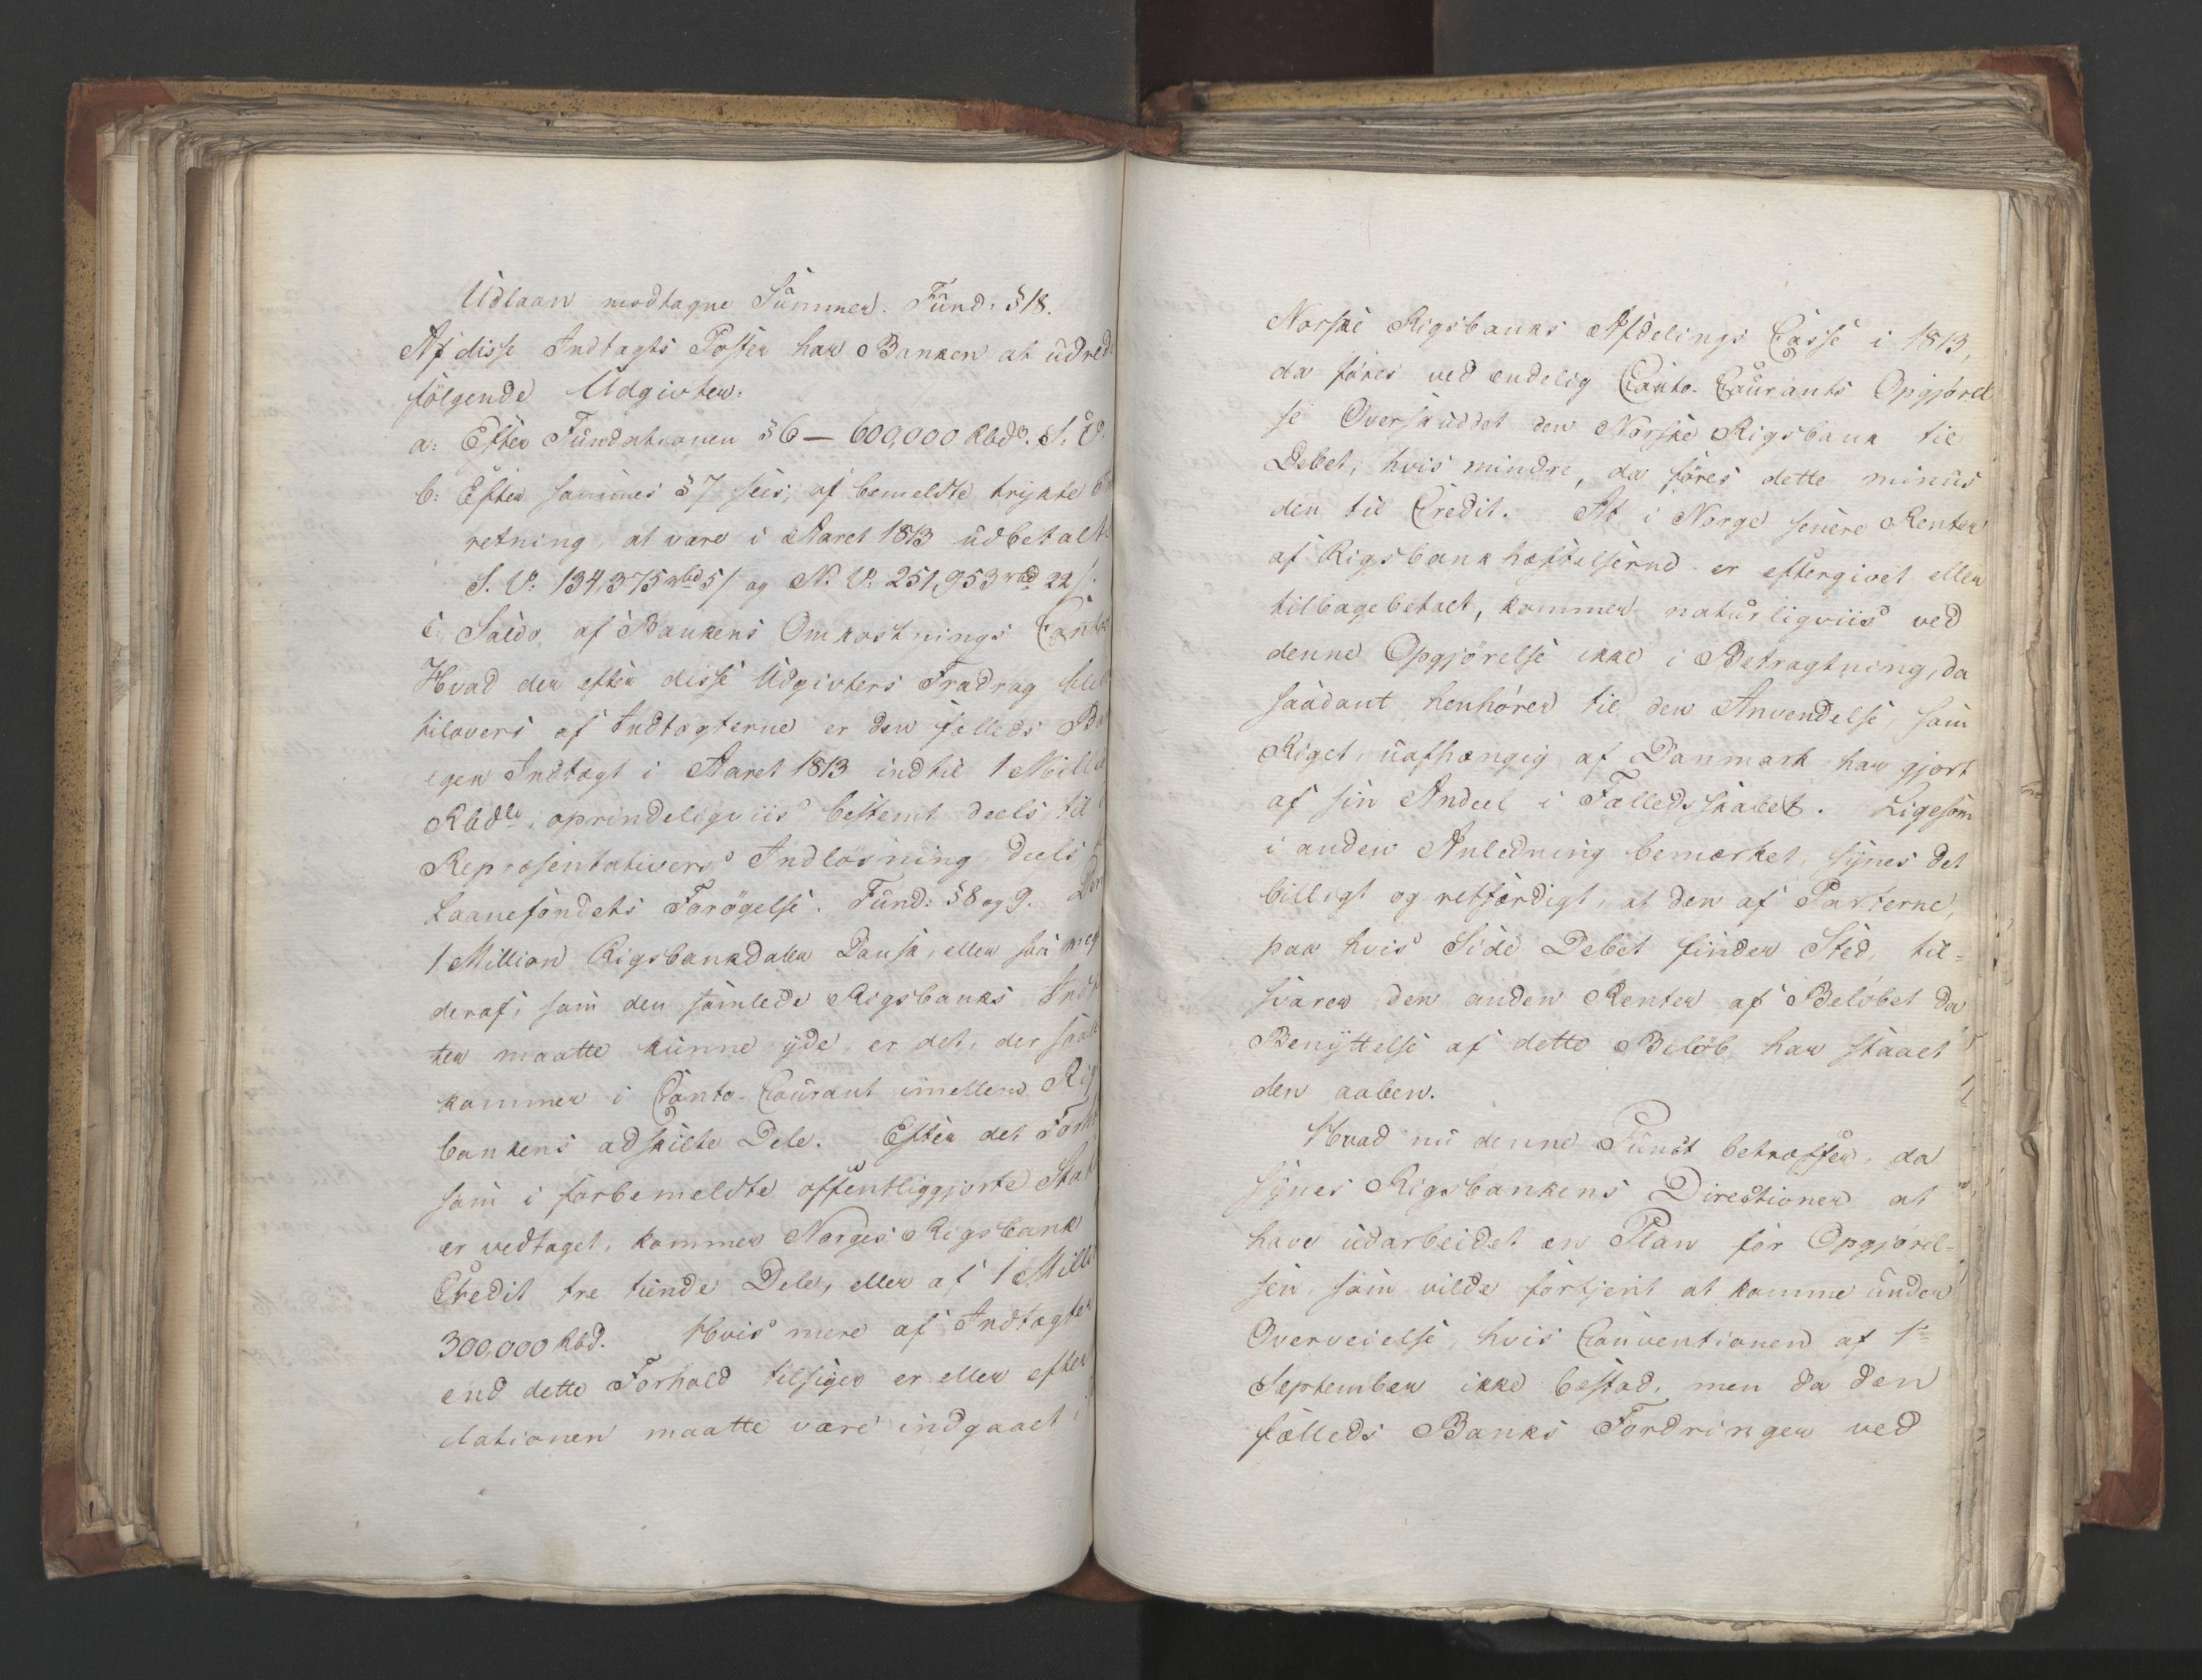 Udlaan modtagne Summer. Fund: § 18.
Af disse Indtægts Poster har Banken at udred
følgende Udgivter:
a: Efter Fundationen § 6 — 600,000 Rbdr. S. V.
b: Efter sammes § 7 sees, af bemeldte trykte
retning, at være i Aaret 1813 udbetalt
S. V. 134,375 rbd 5 / og N. V. 251,953 rbd 22 /.
c: Saldo, af Bankens Omkostnings Conto
Hvad der efter disse Udgivters Fradrag
tilovers af Indtægterne er den fælleds
egen Indtægt i Aaret 1813 indtil 1 Millio
Rbdlr, oprindeligviis bestemt deels til
Repræsentativers Indlösning, deels
Laanefondets Forögelse. Fund: § 8 og 9.
1 Million Rigsbankdaler Dansk, eller saa meg
deraf, som den samlede Rigsbanks Indt
ter maatte kunne yde, er det, der
kommer i Conto-Courant imellem Rig
bankens adskilte Dele. Efter det Forh
som i forbemeldte offentliggjorte
er vedtaget, kommer Norges Rigsbank
Credit tre tiende Dele, eller af 1 Milli
300,000 Rbd. Hvis mere af Indtægter
end dette Forhold tilsiger er eller efter
dationen maatte være indgaaet i
Norske Rigsbanks Afdelings Casse i 1813,
da føres ved endelig Conto-Courants Opgjørel
se Overskuddet den Norske Rigsbank til
Debet, hvis mindre, da føres dette minus
den til Credit. At i Norge senere Renter
af Rigsbankhæftelserne er eftergivet eller
tilbagebetalt, kommer naturligviis ved
denne Opgjørelse ikke i Betragtning, da
saadant henhører til den Anvendelse, som
Riget, uafhængig af Danmark har gjort
af sin Andeel i Fælledsskabet. Ligesom
i anden Anledning bemærket, synes det
billigt og retfærdigt, at den af Parterne,
paa hvis Side Debet finder Sted, til=
svarer den anden Renter af Beløbet da
Benyttelse af dette Beløb har staaet
den aaben.
Hvad nu denne Punct betræffer, da
synes Rigsbankens Directioner at
have udarbeidet en Plan for Opgjørel=
sen, som vilde fortjent at komme under
Overveielse, hvis Conventionen af 1ste
September ikke bestod, men da den
fælleds Banks Fordringer ved